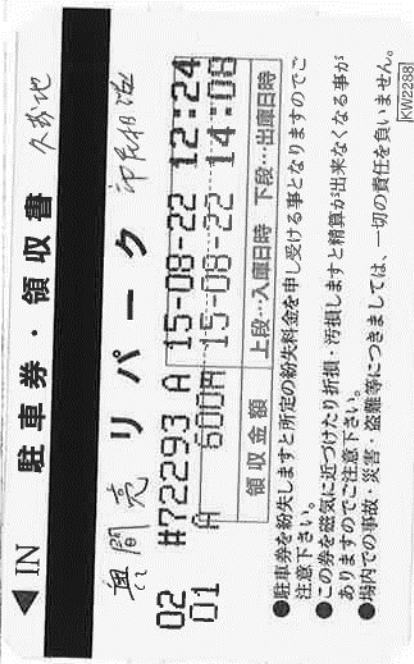 ◀IN 駐車券・領収書
リパーク
02 #72293 A 15-08-22 12:24
01 A 600円 15-08-22 14:08
領収金額 上段…入庫日時 下段…出庫日時
●駐車券を紛失しますと所定の紛失料金を申し受ける事となりますのでご
注意下さい。
●この券を磁気に近づけたり折損・汚損しますと精算が出来なくなる事が
ありますのでご注意下さい。
●場内での事故・災害・盗難等につきましては、一切の責任を負いません。
KW2288